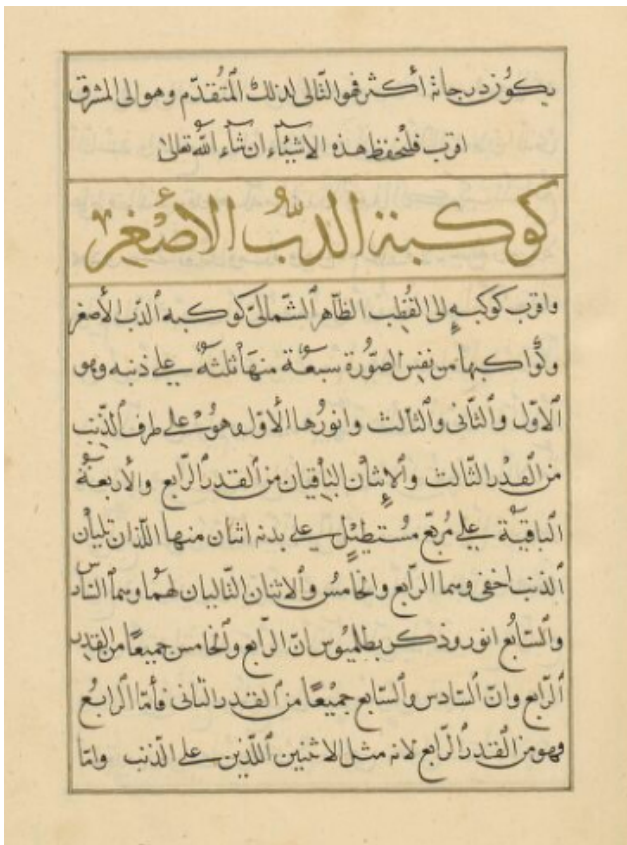 يكون درجاته أكثر فهو التالي لذلك المتقدّم وهو الى المشرق
اقرب فلتحفظ هذه الاشياء ان شاء الله تعالى
كوكبة الدبّ الأصغر
واقرب كوكبه إلى القطب الظاهر الشمالىّ كوكبه الدّب الأصغر
وكواكبها من نفس الصّورة سبعة منها ثلثه على ذنبه وهو
الاوّل والثّانى والثالث وانورها الأوّل وهو على طرف الذنب
من القدر الثالث والإثنان الباقيان من القدر الرّابع والأربعة
الباقية على مُربّع مُستطيل على بدنه اثنان منها اللّذان تليان
الذنب اخفى وهما الرّابع والخامس والاثنان التّاليان لهما وهما السّاد
والسّابع انور وذكر بطلميوس انّ الرّابع والخامس جميعًا من القدر
الرّابع وانّ السّادس والسّابع جميعًا من القدر الثانى فأمّا الرابع
فهو من القدر الرّابع لانه مثل الاثنين اللّذين على الذنب وامّا